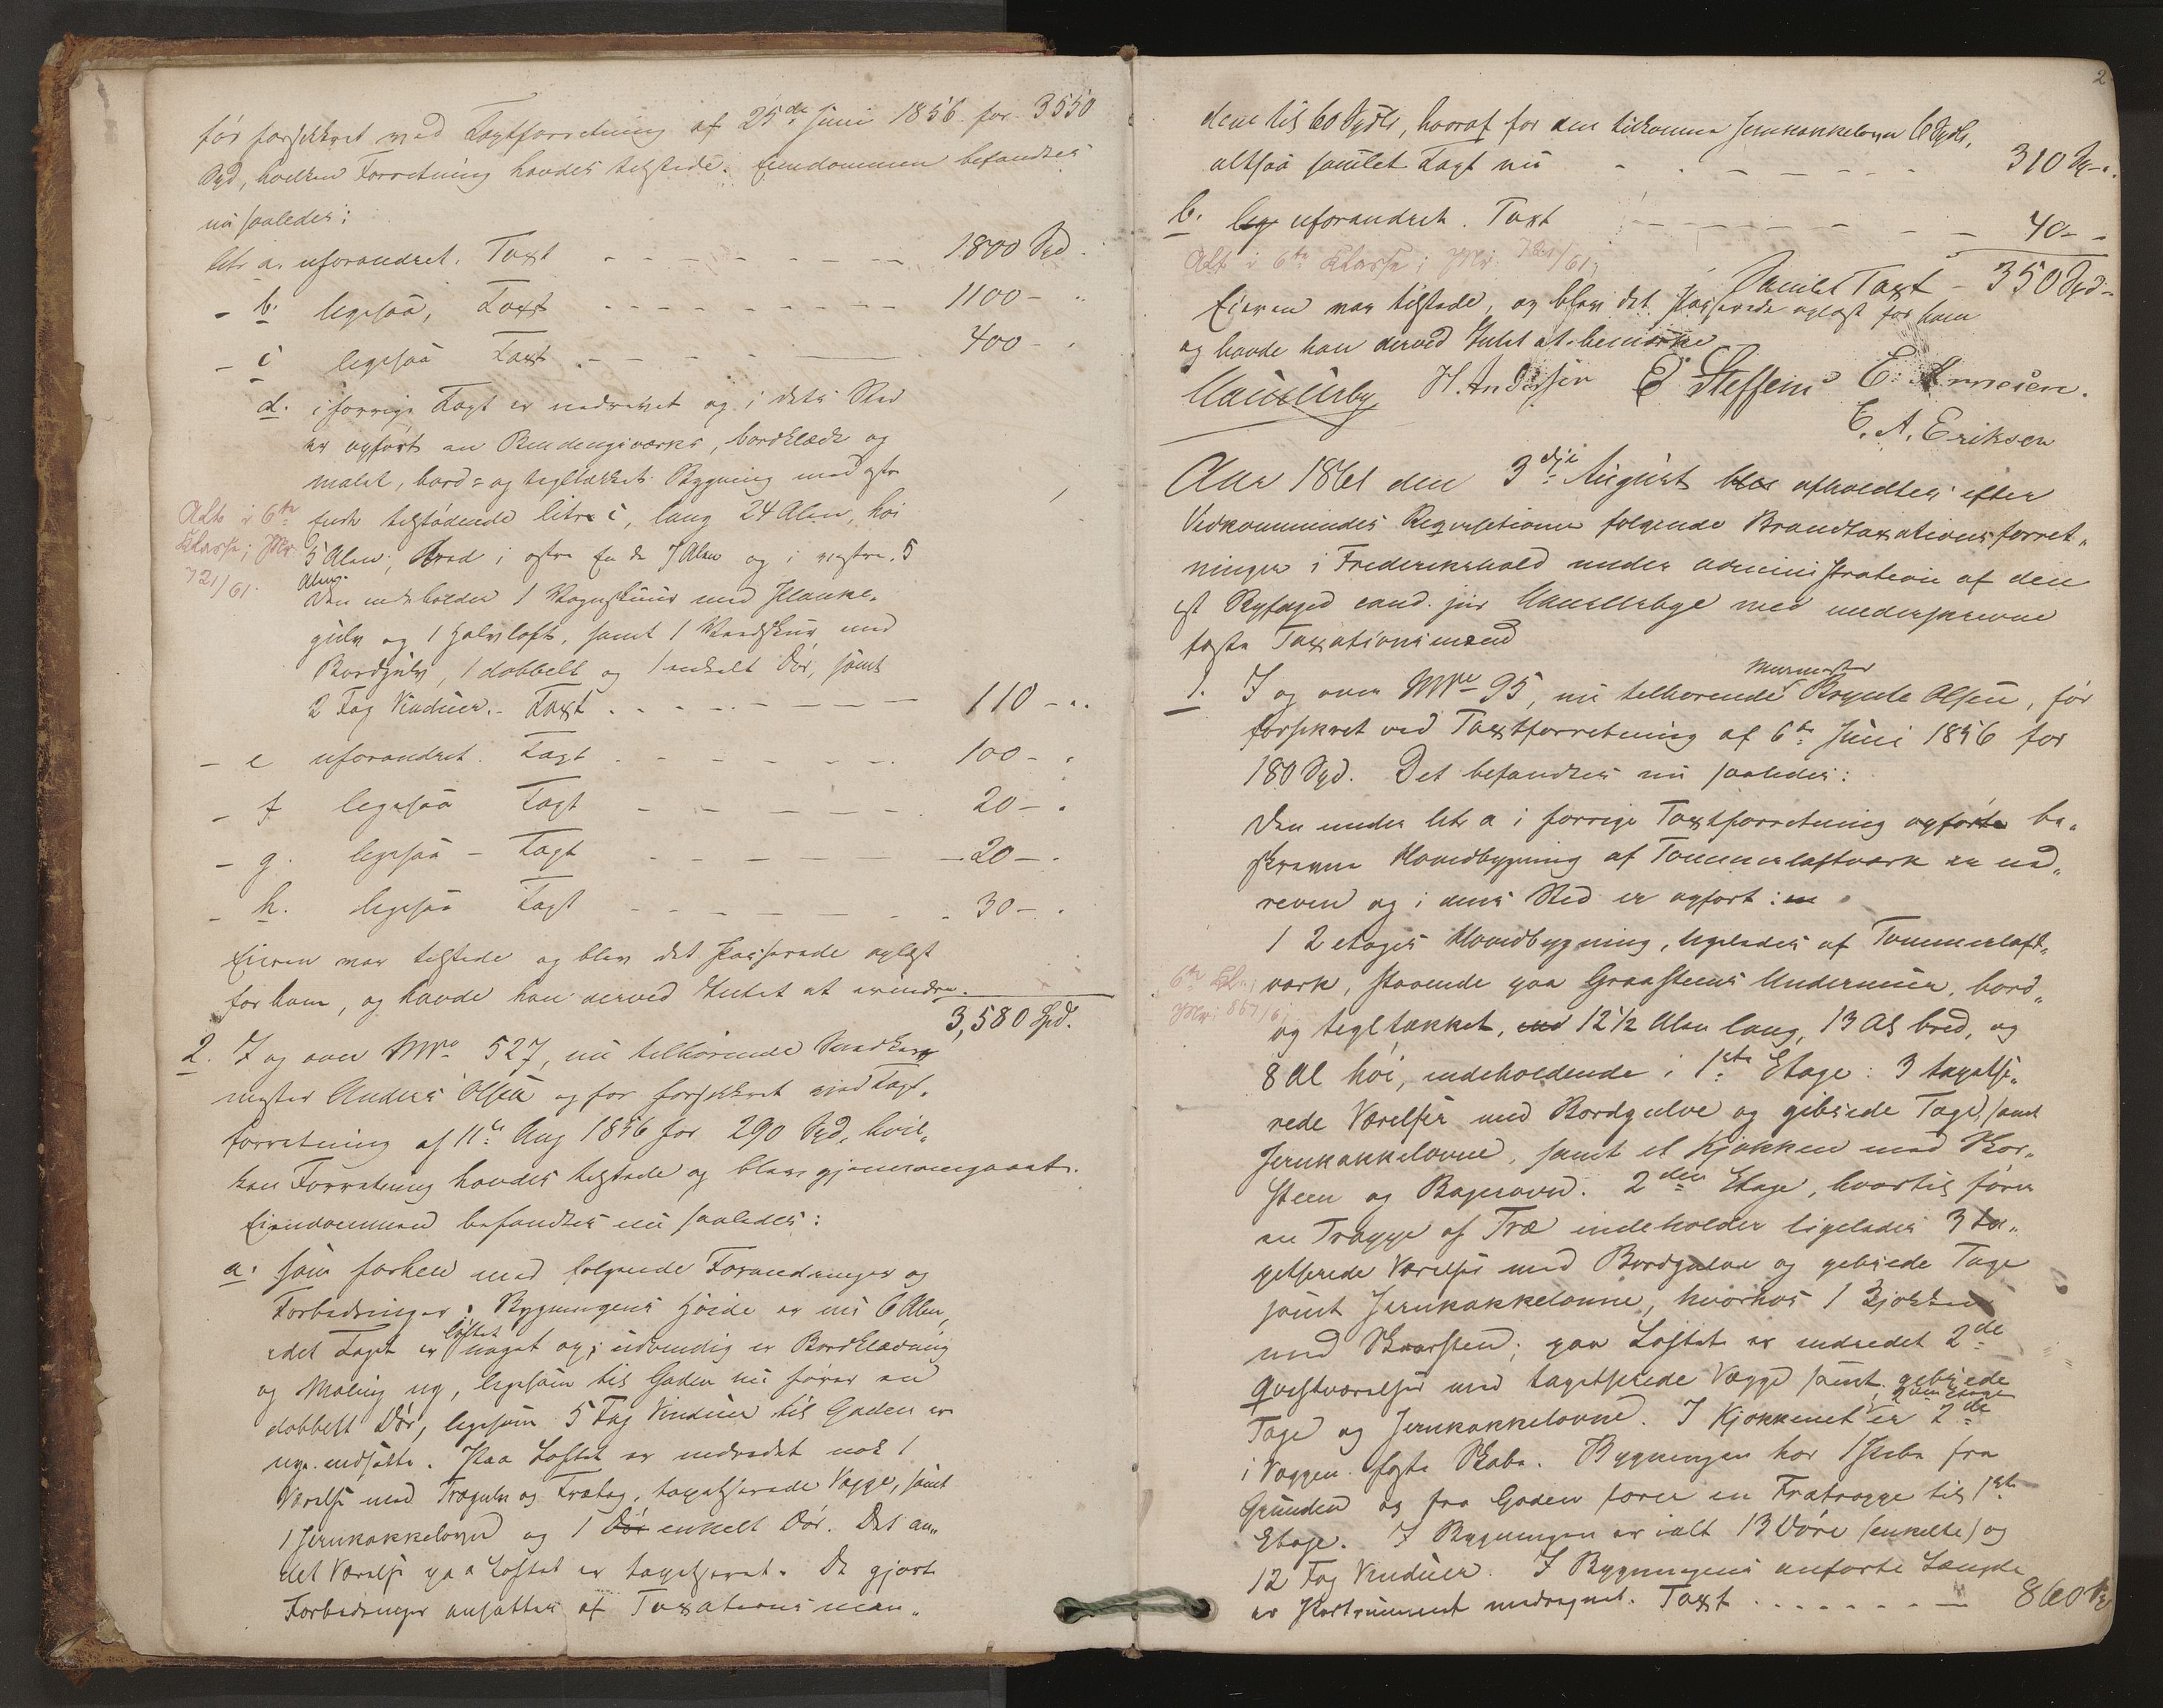 før forsikkret ved Taxtforretning af 25de Juni 1856 for 3550
Spd, hvilken Forretning havdes tilstede. Eiendommen befandtes
nu saaledes:
Litr a. uforandret. Taxt - - - - - - - 1800 Spd.
- b. ligesaa, Taxt - - - - - - - 1100 - "
- c ligesaa Taxt - - - - - 400 - "
d. i forrige Taxt er nedrevet og i dets Sted
er opført en Bindingsværks, bordklædt og
malet, bord= og tegltækket Bygning med østre
Ende tilstødende litr c, lang 24 Alen, høi
5 Alen, bred i østre Ende 7 Alen og i vestre 5
Alen.
Den indeholder 1 Vognskuur med Planke-
gulv og 1 Halvloft, samt 1 Vedskuur med
Bordgulv, 1 dobbelt og 1 enkelt Dør, samt
2 Fag Vinduer. - Taxt - - - - - - 110 - "
Alt i 6te
Klasse; Skr.
721/61.
- e uforandret. Taxt - - - - - - 100 - "
- f ligesaa Taxt - - - - - - 20 - "
- g. ligesaa - Taxt - - - - - - 20 - "
- h. ligesaa Taxt - - - - - - 30 - "
Eieren var tilstede og blev det Passerede oplæst
for ham, og havde han derved Intet at erindre.
3,580 Spd.
2. I og over MNo 527, nu tilhørende Snedker
mester Anders Olsen og før forsikkret ved Taxt-
forretning af 11te Aug 1856 for 290 Spd, hvil-
ken Forretning havdes tilstede og blev gjennemgaaet.
Eiendommen befandtes nu saaledes:
a. som forhen med følgende Forandringer og
Forbedringer: Bygningens Høide er nu 6 Alen,
idet Taget er løftet noget op; udvendig er Bordklædning
og Maling ny, ligesom til Gaden nu fører en
dobbelt Dør, ligesom 5 Fag Vinduer til Gaden er
nye indsatte. Paa Loftet er indredet nok 1
Værelse med Trægulv og Trætag, tapetserede Vægge, samt
1 Jernkakkelovn og 1 Dør enkelt Dør. Det an-
det Værelse paa Loftet er tapetseret. De gjorte
Forbedringer ansattes af Taxationsmæn-
2
dene til 60 Spdlr, hvoraf for den tilkomne Jernkakkelovn 6 Spdlr,
altsaa samlet Taxt nu - - - - - - - 310 Sp - "
b. lig uforandret. Taxt - - - - - - - 40 - "
Alt i 6te Klasse; Skr. /61.
Samlet Taxt - 350 Spd -
Eieren var tilstede, og blev det Passerede oplæst for ham
og havde han derved Intet at bemærke
H. Andersen E. Steffens E. Arnesen.
E. A. Eriksen
Aar 1861 den 3die August blev afholdtes efter
Vedkommendes Reqvisitioner følgende Brandtaxationsforret-
ninger i Frederikshald under Administration af den
cst Byfoged cand. jur. med underskrevne
faste Taxationsmænd
1. I og over MNo 95, nu tilhørende Murmester Brynte Olsen, før
forsikret ved Taxtforretning af 6te Juni 1856 for
180 Spd. Det befandtes nu saaledes:
Den under litr a i forrige Taxtforretning opførte be-
skrevne Hovedbygning af Tømmerlaftværk er ned-
reven og i dens Sted er opført: en
1 2 etages Hovedbygning, ligeledes af Tømmerlaft-
værk, staaende paa Graasteens Undermuur, bord-
og tegltækket, 12 1/2 Alen lang, 13 Al bred, og
8 Al høi, indeholdende i 1ste Etage: 3 tapetse-
rede Værelser med Bordgulve og gibsede Tage, samt
Jernkakkelovne, samt et Kjøkken med Skor-
steen og Bagerovn. 2den Etage, hvortil fører
en Trappe af Træ indeholder ligeledes 3 ta-
petserede Værelser med Bordgulve og gibsede Tage
samt Jernkakkelovne, hvorhos 1 Kjøkken
med Skorsten; paa Loftet er indredet 2de
Qvistværelser med tapetserede Vægge samt gibsede
Tage og Jernkakkelovne. I Kjøkkenet i 2den Etage er 2de
i Væggen faste Skabe. Bygningen har 1 Pibe fra
Grunden og fra Gaden fører en Trætrappe til 1ste
Etage. I Bygningen er ialt 13 Døre (enkelte) og
12 Fag Vinduer. I Bygningens anførte Længde
er Portrummet medregnet. Taxt - - - - - - - 860 Sp
6te Kl.;
Skr. 867/61